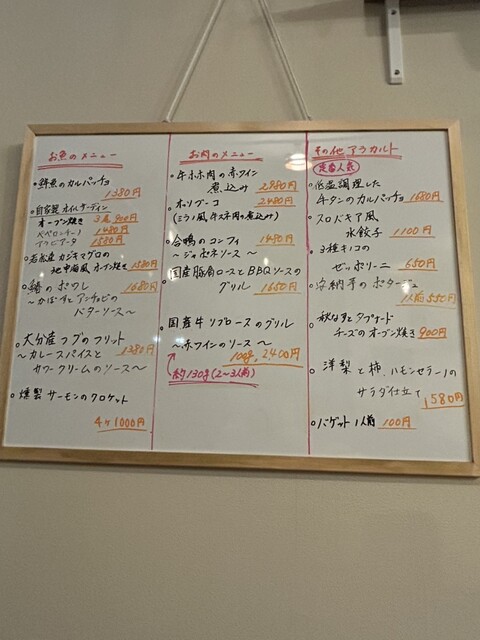 お魚のメニュー
鮮魚のカルパッチョ
1380円
自家製オイルサーディン
オーブン焼き 3尾 900円
ペペロンチーノ 1480円
アラビアータ 1580円
若松産カジキマグロの
地中海風オーブン焼き 1580円
鰆のポワレ 1680円
〜かぼすとアンチョビの
バターソース〜
大分産フグのフリット
〜カレースパイスと 1380円
サワークリームのソース〜
燻製サーモンのクロケット
4ヶ1000円
お肉のメニュー
牛ホホ肉の赤ワイン
煮込み 2980円
オッソブーコ 2480円
(ミラノ風牛スネ肉の煮込み)
合鴨のコンフィ 1480円
〜ジャポネソース〜
国産豚肩ロースとBBQソースの
グリル 1650円
国産牛リブロースのグリル
〜赤ワインのソース〜
100g、2,400円
約130g(2〜3人前)
その他アラカルト
定番人気
低温調理した
牛タンのカルパッチョ 1680円
スロバキア風
水餃子 1100円
3種キノコの
ゼッポリーニ 650円
安納芋のポタージュ
1人前550円
秋なすとタプナード
チーズのオーブン焼き 900円
洋梨と柿、ハモンセラーノの
サラダ仕立て
1580円
バゲット1人前 100円